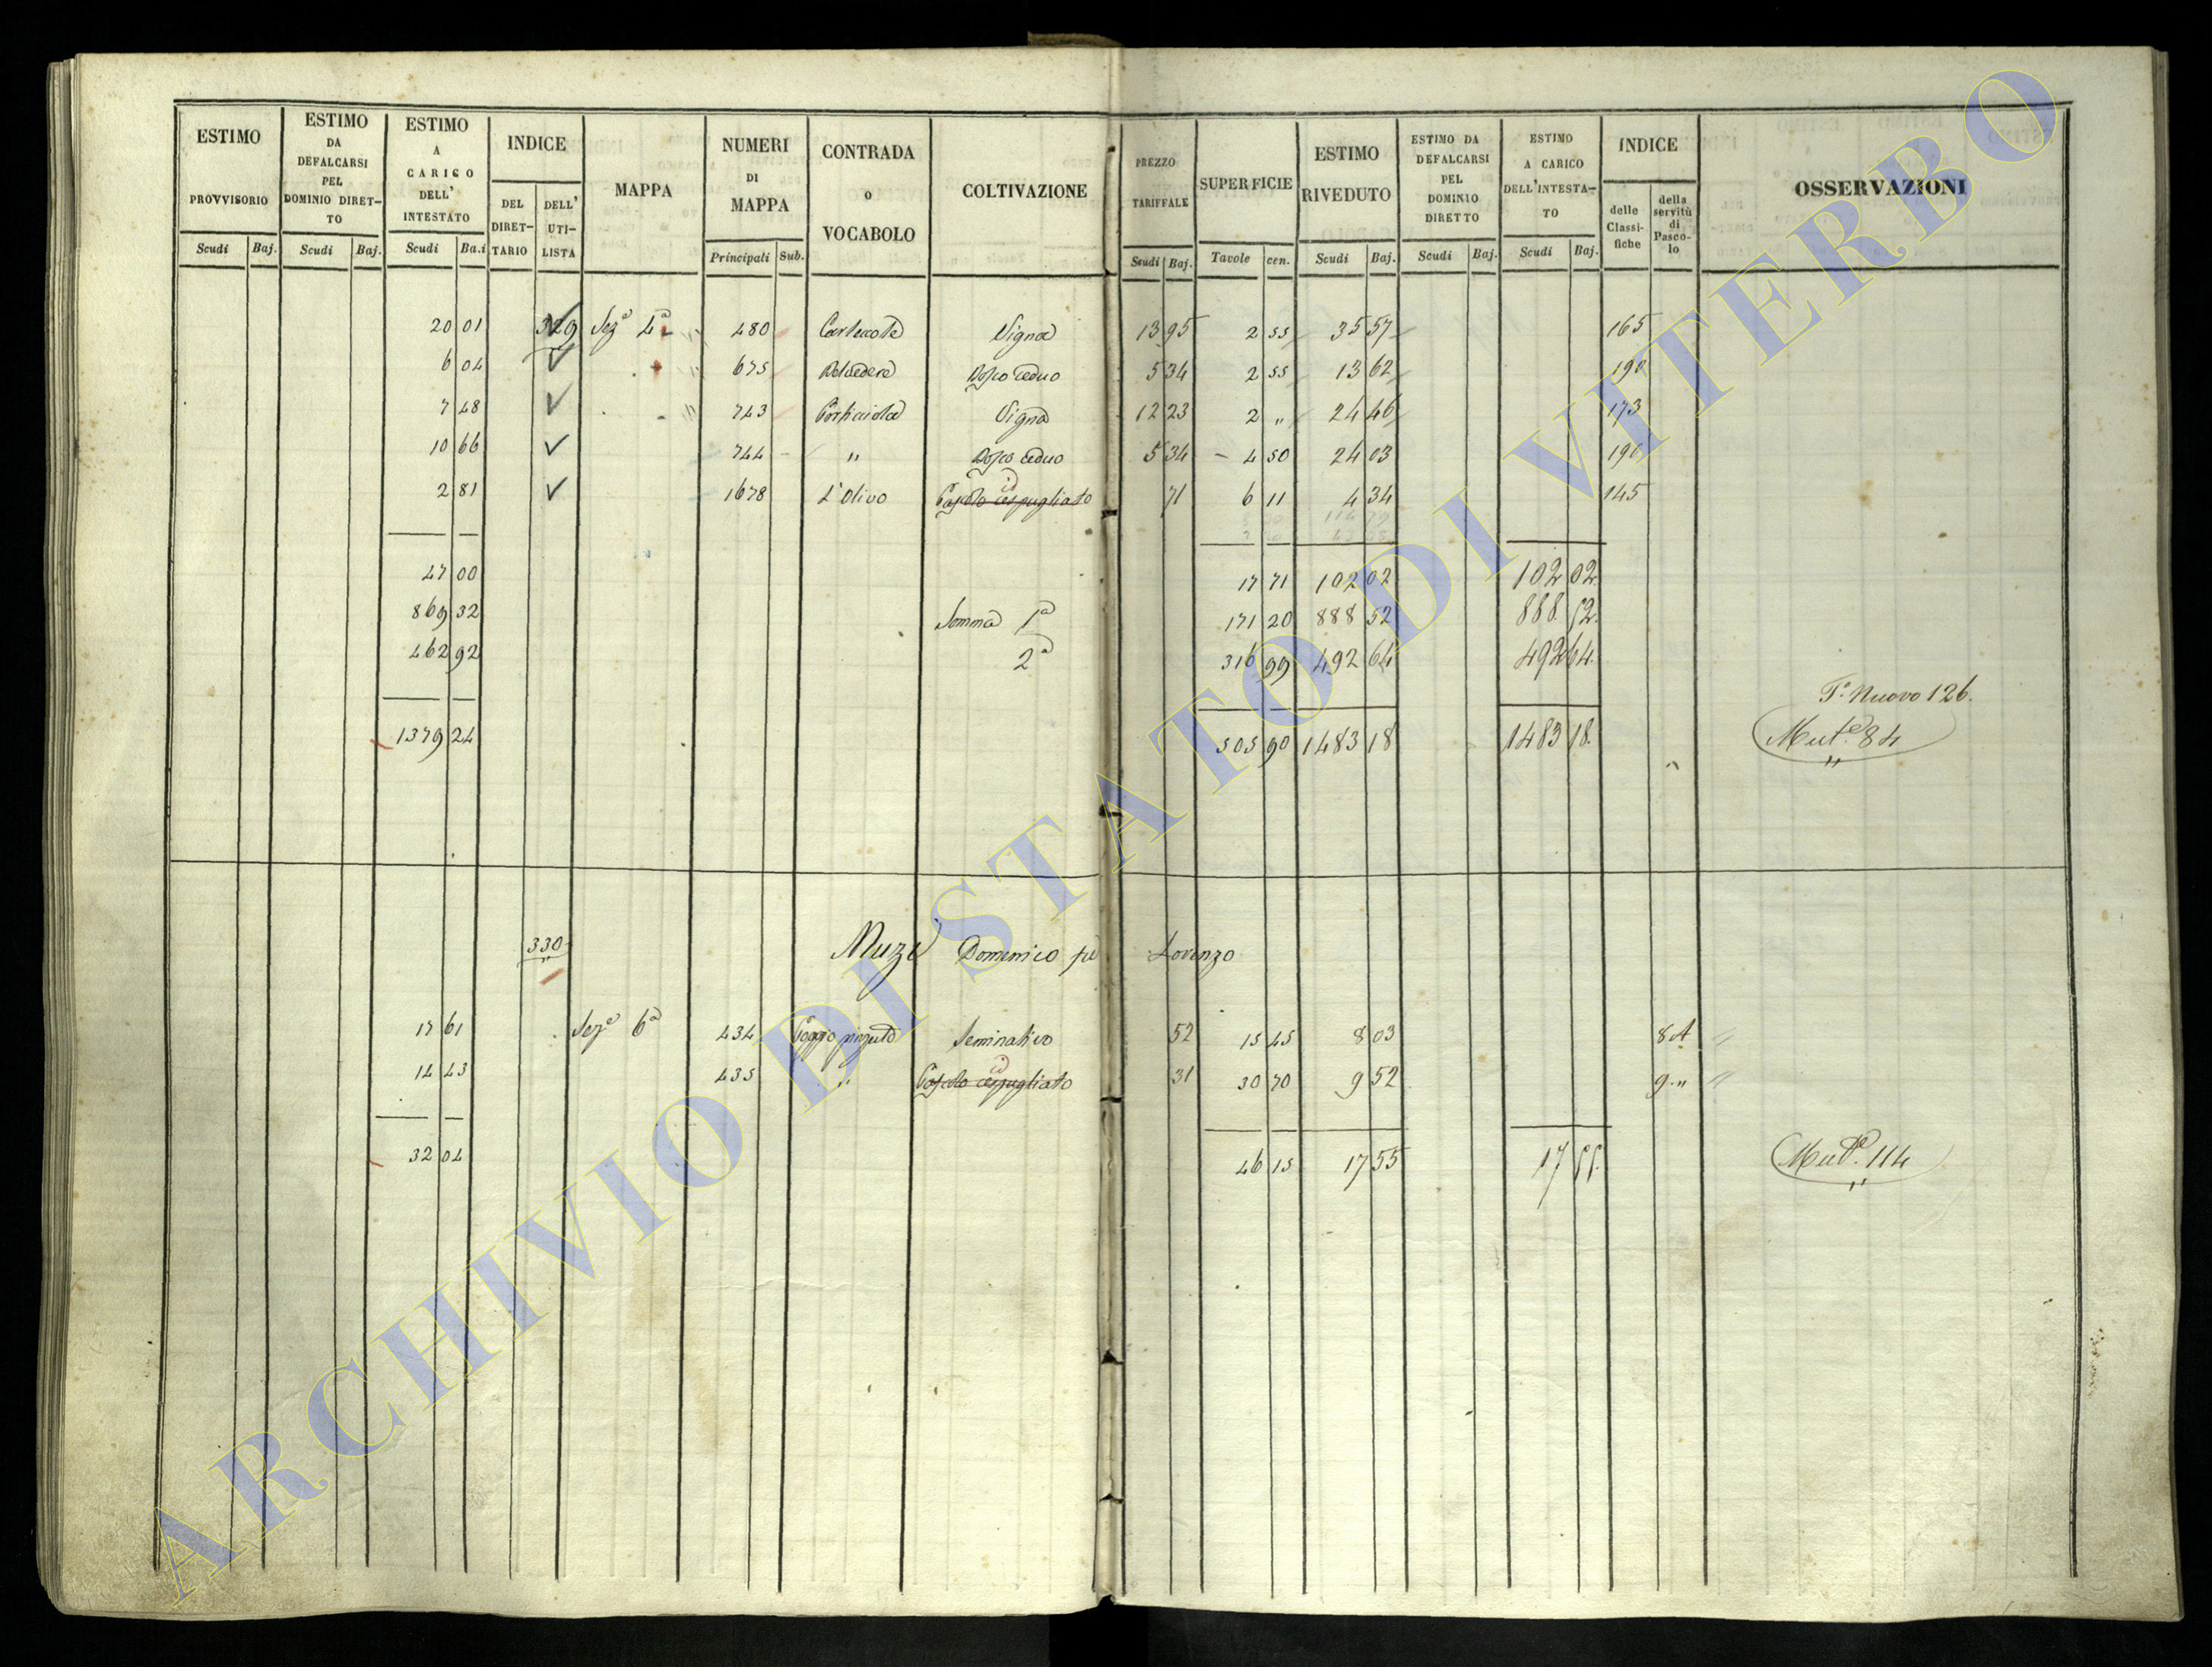 ESTIMO PROVVISORIO Scudi Baj. ESTIMO DA DEFALCARSI PEL DOMINIO DIRETTO Scudi Baj. ESTIMO A CARICO DELL' INTESTATO Scudi Ba.i INDICE DEL DIRETTARIO DELL' UTILISTA MAPPA NUMERI DI MAPPA Principali Sub. CONTRADA o VOCABOLO COLTIVAZIONE PREZZO TARIFFALE Scudi Baj. SUPERFICIE Tavole cen. ESTIMO RIVEDUTO Scudi Baj. ESTIMO DA DEFALCARSI PEL DOMINIO DIRETTO Scudi Baj. ESTIMO A CARICO DELL'INTESTATO Scudi Baj. INDICE delle Classifiche della servitù di Pascolo OSSERVAZIONI
20 01 329 Sez.e 4a " 480 Vigna 13 95 2 55 35 57 165
6 04 " 675 Belvedere Bosco ceduo 5 34 2 55 13 62 190
7 48 " 743 Vigna 12 23 2 " 24 46 173
10 66 744 " Bosco ceduo 5 34 4 50 24 03 190
2 81 1678 L'Olivo Pascolo cespugliato 71 6 11 4 34 145
47 00 17 71 102 02 102 02
869 32 Somma 1a 171 20 888 52 888 52
462 92 2a 316 99 492 64 492 64
T.o Nuovo 126.
1379 24 505 90 1483 18 1483 18 Mut.e 84
330 Domenico fu Lorenzo
17 61 Sez.e 6a 434 Poggio pizzuto Seminativo 52 15 45 8 03 8 A "
14 43 435 " Pascolo cespugliato 31 30 70 9 52 9 " "
32 04 46 15 17 55 17 55 Mut.e 114
ARCHIVIO DI STATO DI VITERBO